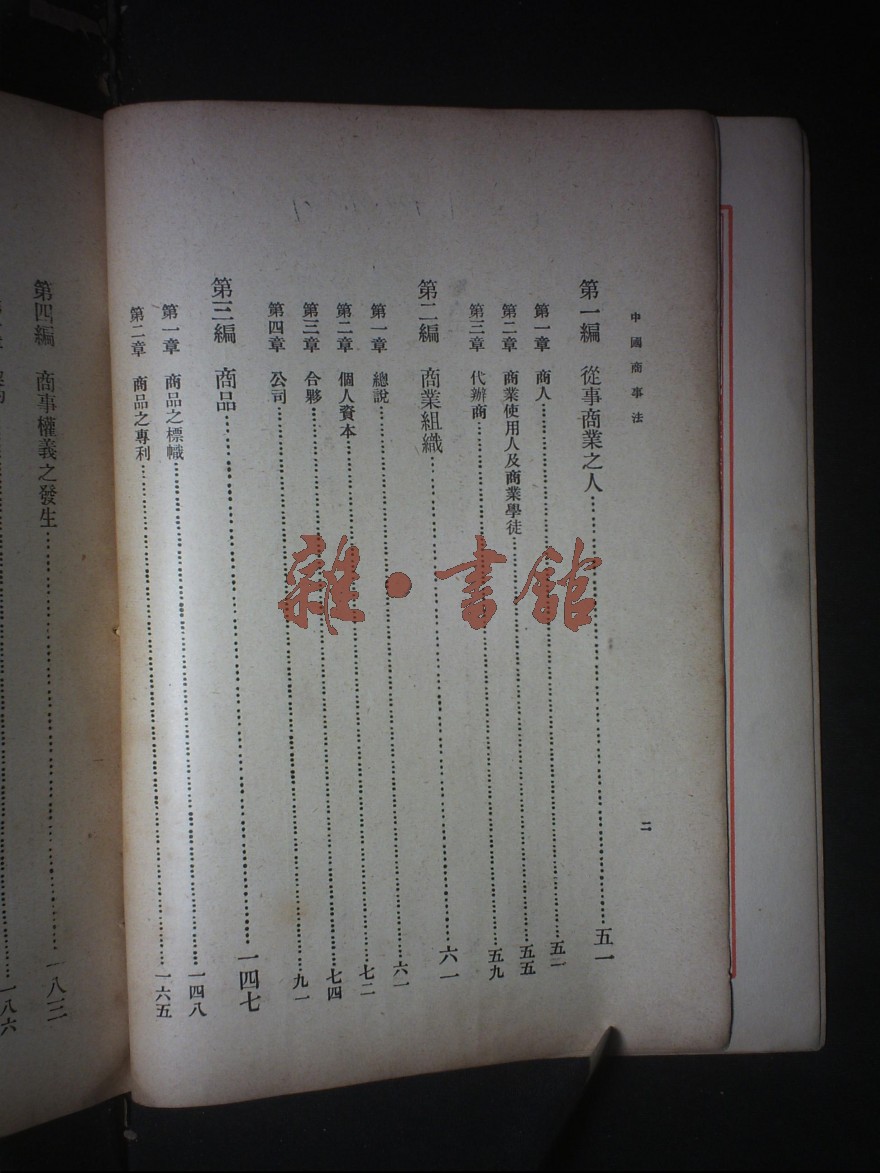 中國商事法
第一編　從事商業之人……五一
第一章　商人……五一
第二章　商業使用人及商業學徒……五五
第三章　代辦商……五九
第二編　商業組織……六一
第一章　總說……六一
第二章　個人資本……七二
第三章　合夥……七四
第四章　公司……九一
第三編　商品……一四七
第一章　商品之標幟……一四八
第二章　商品之專利……一六五
二
第四編　商事權義之發生……一八三
一八六
雜·書館